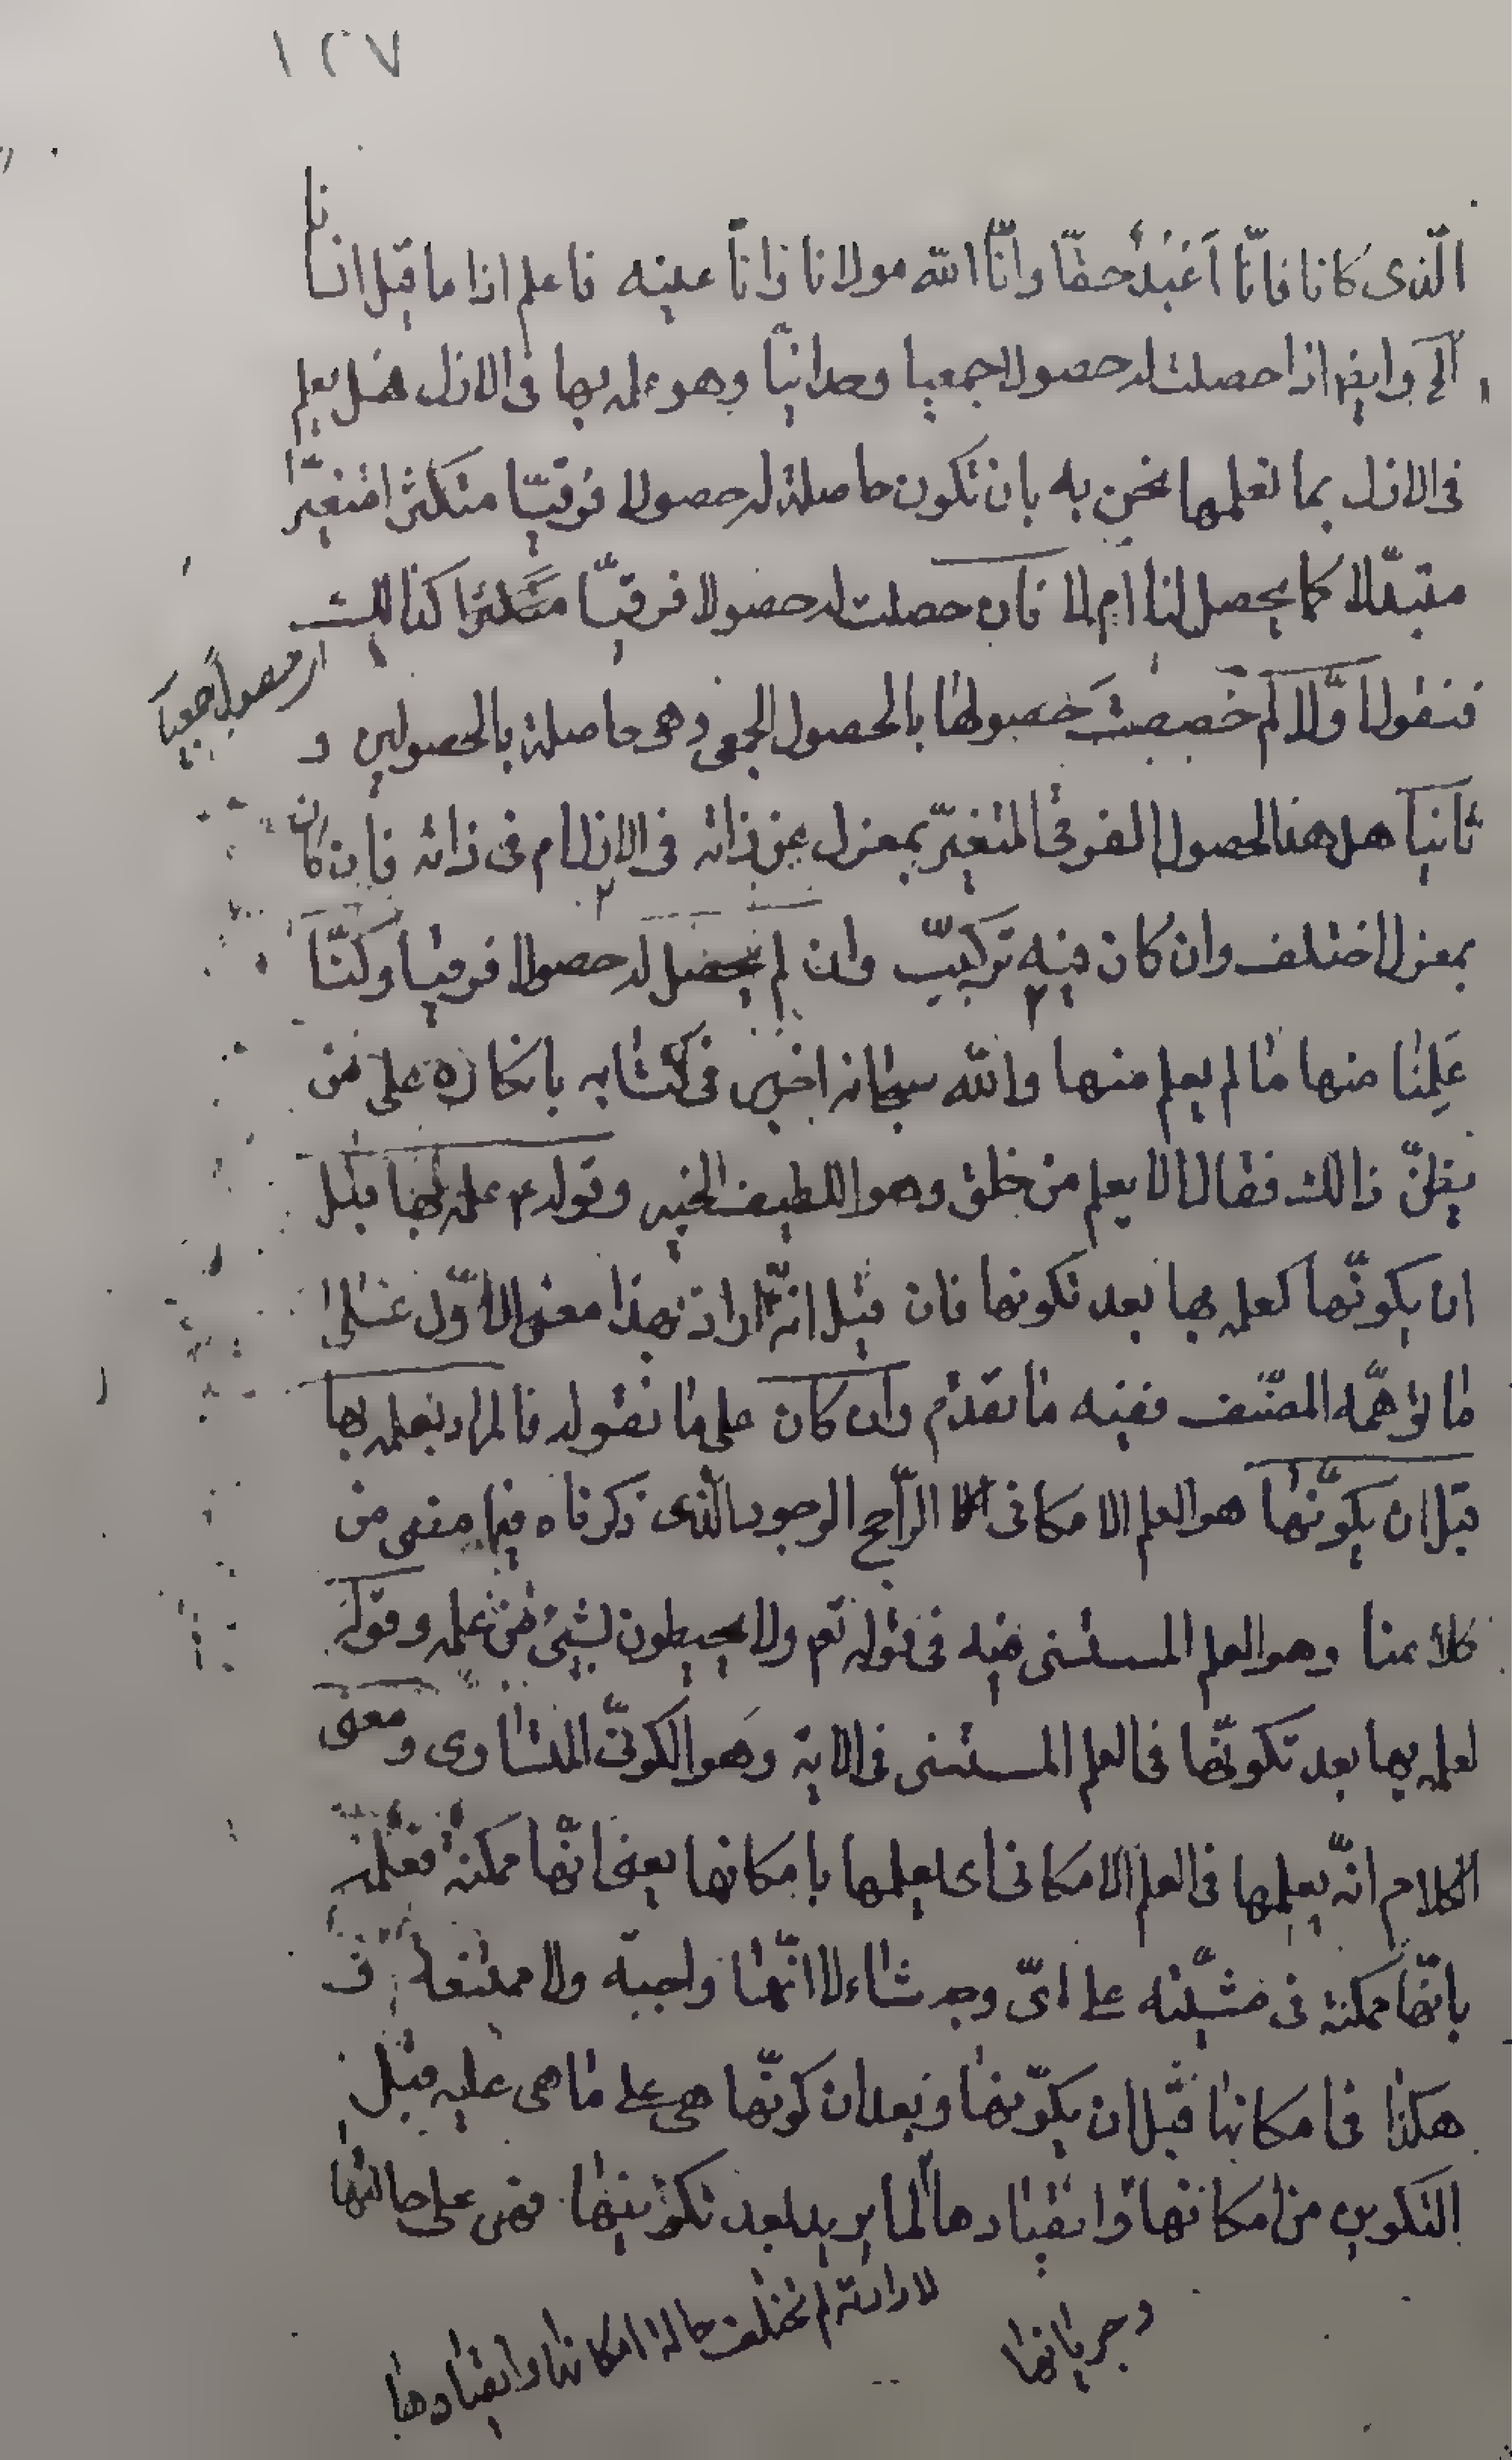 ١٢٧
الّذى كانا فانّا اَعْبُدٌ حقّا وانّا الله مولانا ذاناً علينه فاعلم اذا ما قيل انسانا
آلخ وايضا اذا حصلت له حصولا جمعيا وحدانيّا وهو علمه بها فى الازل هل يعلم
فى الازل بما نعلمها نحن به بان تكون حاصلة له حصولا فرقيّا متكثرا متغيّرا
متبدّلا كما يحصل لنا ام لا فان حصلت له حصولا فرقيّا متكثرا كذالك
فنقول اوّلا لم خصصت حصولها بالحصول الجمعى وهى حاصلة بالحصولين و
له حصولا جمعيا
ثانيا هل هذا الحصول الفرقى المتغيّر بمعزل عن ذاته فى الازل ام فى ذاته فان كان
بمعزل اختلف وان كان فيه تركيب وان لم يحصل له حصولا فرقيا وكنّا
عَلِمْنا منها ما لم يعلم منها والله سبحانه اخبر فى كتابه بانكاره على من
يظنّ ذالك فقال الا يعلم من خلق وهو اللطيف الخبير وقوله ع علمه بها قبل
ان يكونّها كعلمه بها بعد تكونها فان قيل انّه اراد بهذا معنى الاوّل على
ما توهّمه المصنّف ففيه ما تقدّم وان كان على ما نقوله فالمراد بعلمه بها
قبل ان يكوّنها هو العلم الامكانى الرّاجح الوجود الّذى ذكرناه فيما مضى من
كلامنا وهو العلم المستثنى منه فى قوله تعم ولا يحيطون بشيئ من علمه وقوله
لعلمه بها بعد تكونّها فالعلم المستثنى فى الاية وهو الكونىّ المتساوى ومعنى
الكلام انّه يعلمها فى العلم الامكانى اى يعلمها بامكانها يعنى انّها ممكنة فعلمه
بانّها ممكنة فى مشيّته على اىّ وجه شاء لا انّها واجبة ولا ممتنعة ف
هكذا فى امكانها قبل ان يكوّنها وبعد ان كونّها هى على ما هى عليه قبل
التكوين من امكانها وانقيادها لما يريد بعد تكوينها فهى على حالتها
وجريانها
لارادته لم تختلف حالة امكانها وانقيادها